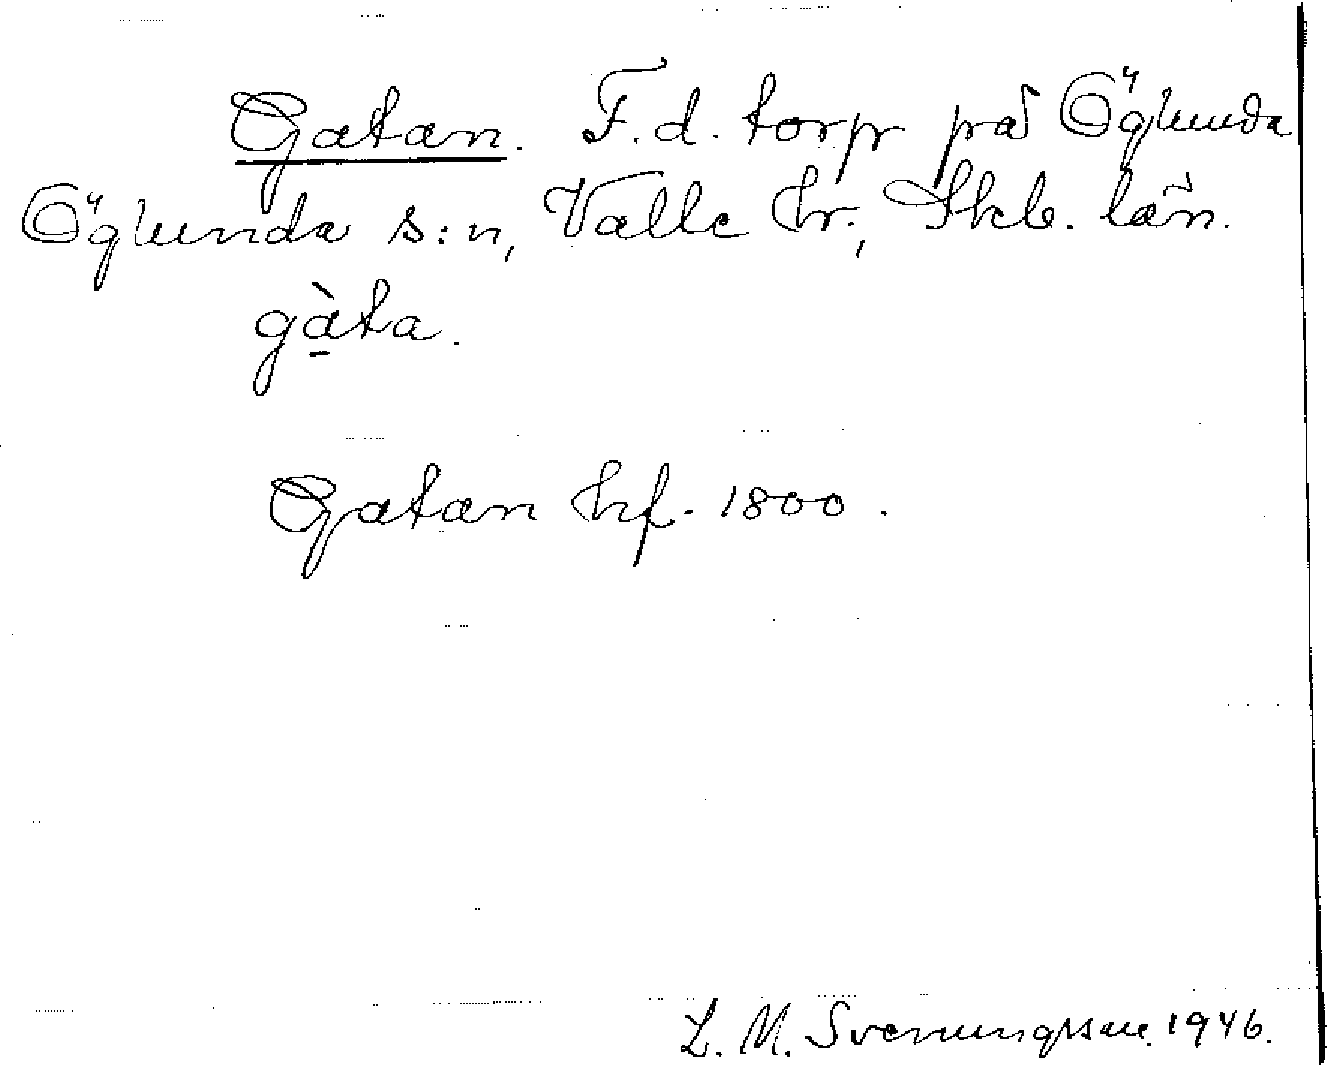 Gatan. F.d. torp på Öglunda
Öglunda s:n, Valle hr., Skb. län.
gàta.
Gatan hf. 1800.
L. M. Svenungsson. 1946.